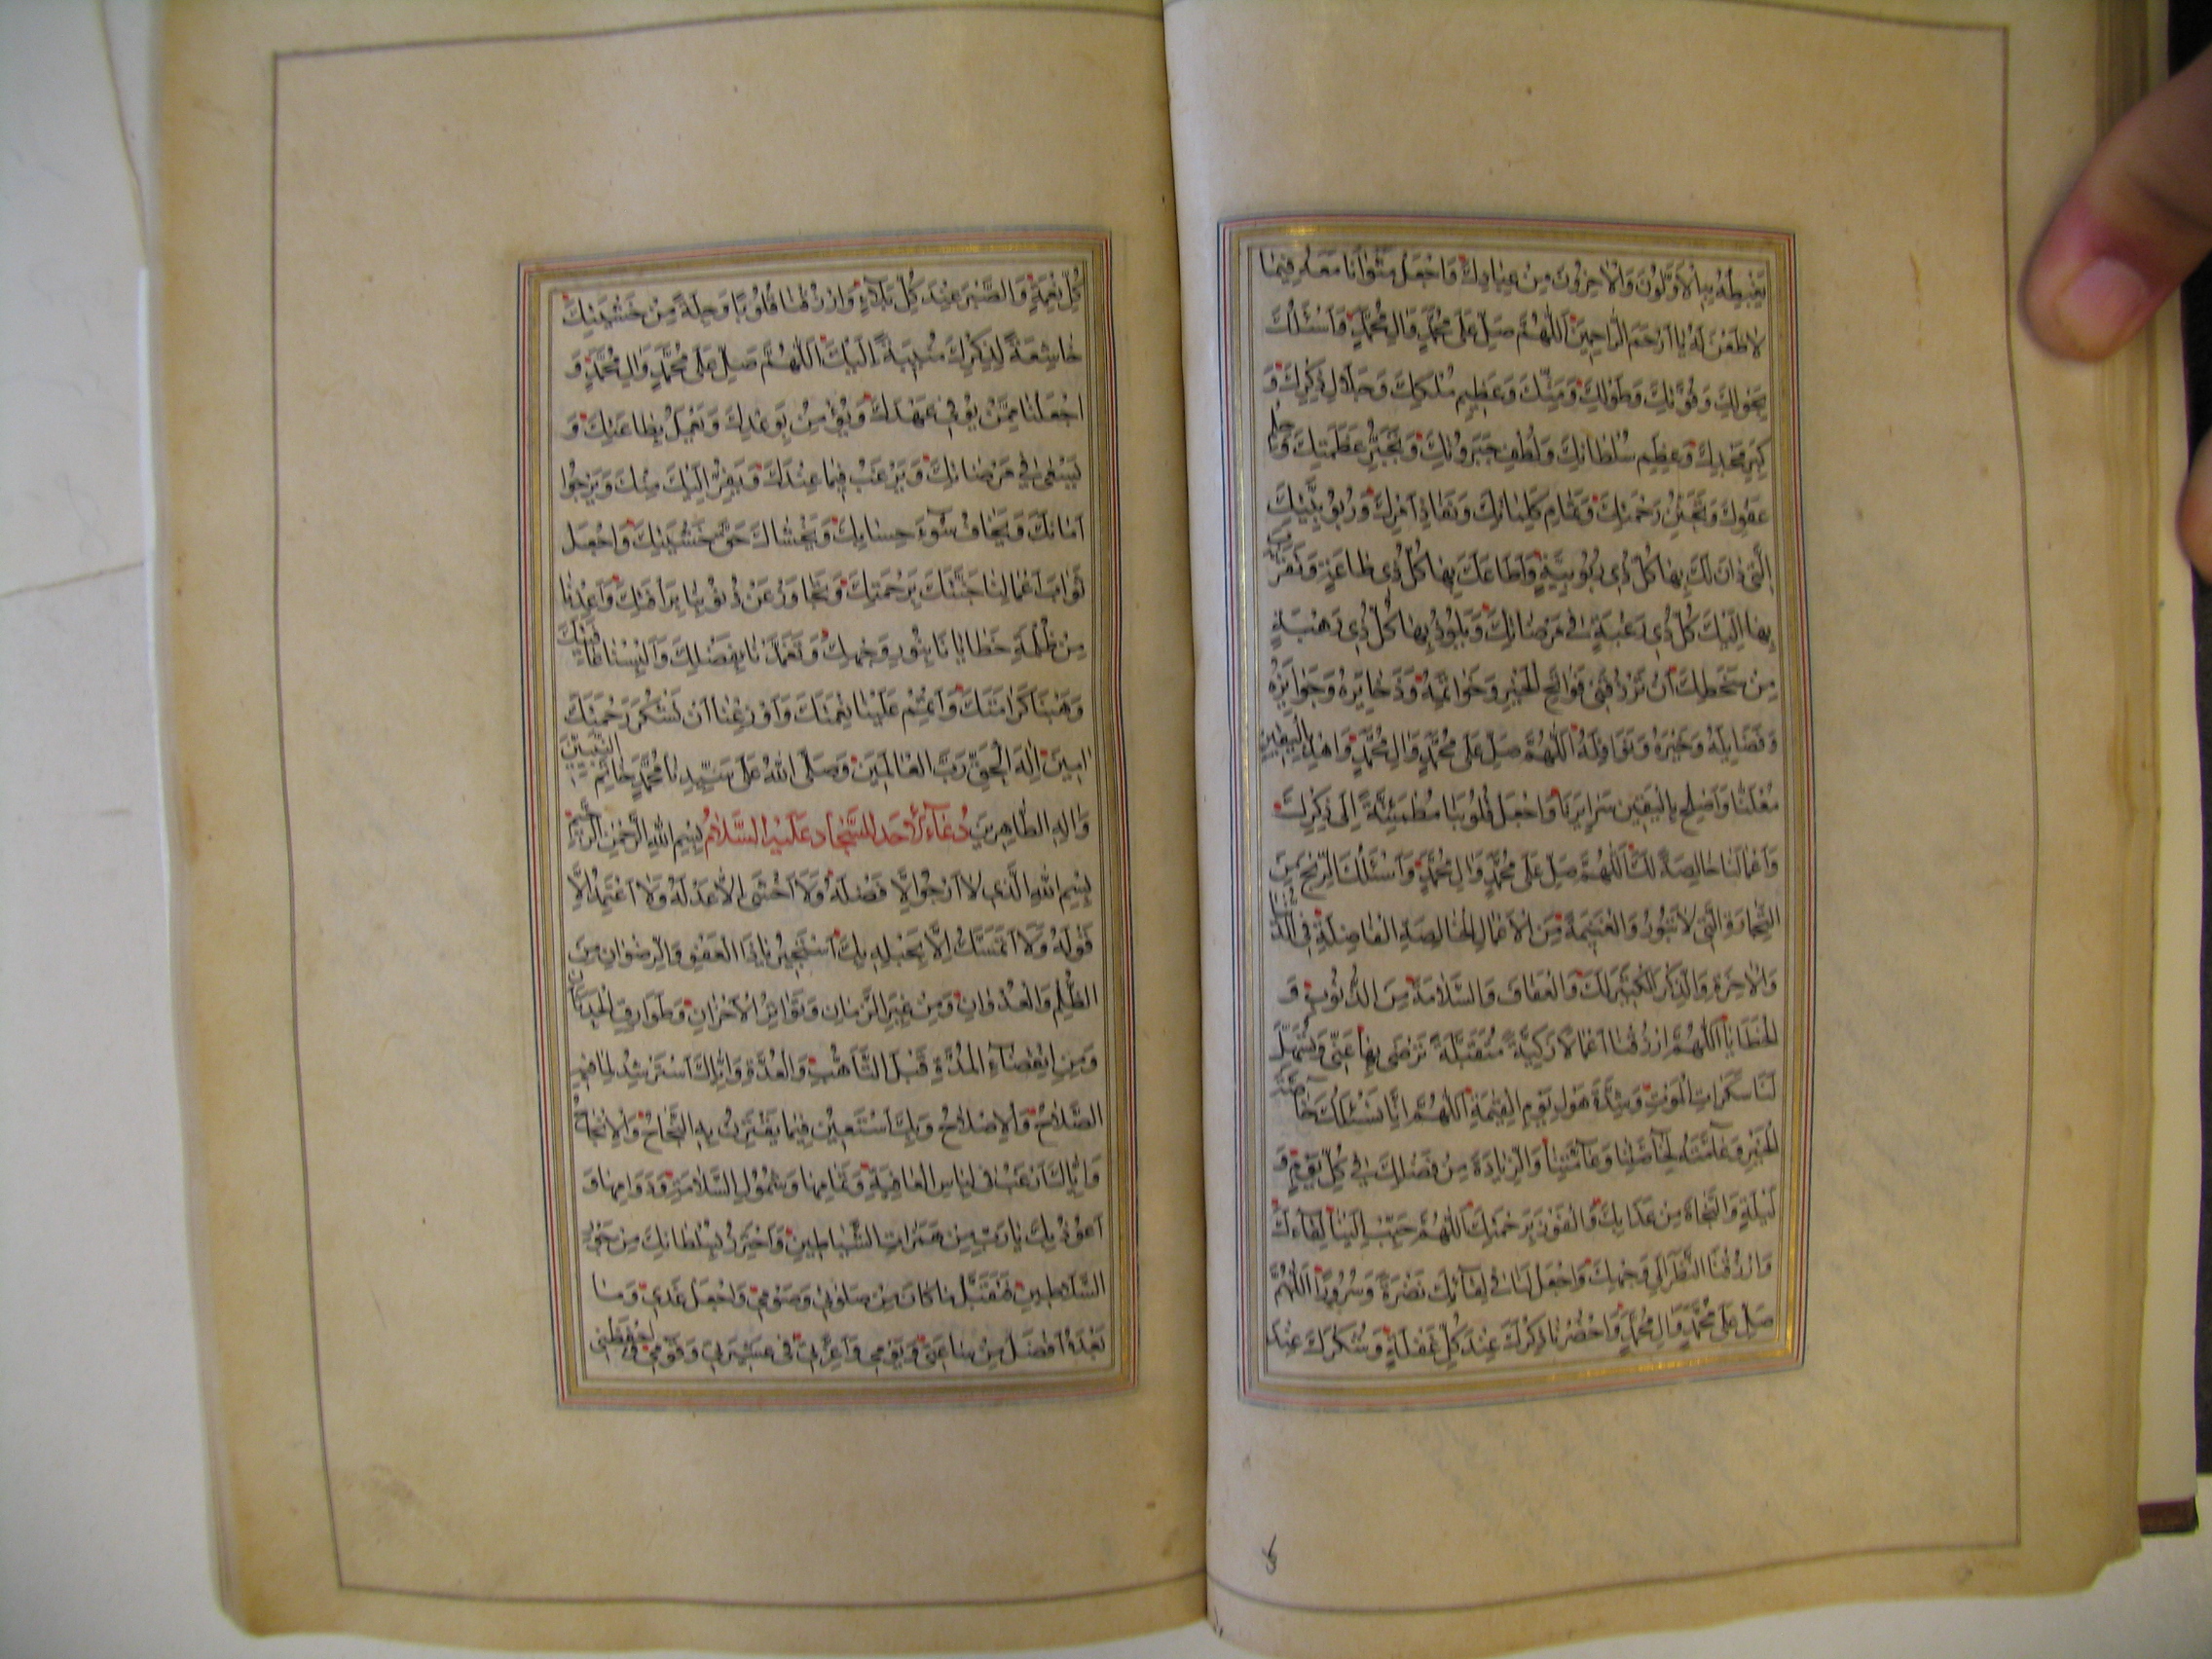 يَغْبِطُهُ بِهِ الْأَوَّلُونَ وَالْآخِرُونَ مِنْ عِبَادِكَ وَاجْعَلْ مَثْوَانَا مَعَهُ فِيمَا
لَا ظَعْنَ لَهُ يَا أَرْحَمَ الرَّاحِمِينَ اَللّٰهُمَّ صَلِّ عَلَى مُحَمَّدٍ وَآلِ مُحَمَّدٍ وَأَسْئَلُكَ
بِحَوْلِكَ وَقُوَّتِكَ وَطَوْلِكَ وَمَنِّكَ وَعَظِيمِ مُلْكِكَ وَجَلَالِ ذِكْرِكَ وَ
كِبَرِ مَجْدِكَ وَعِظَمِ سُلْطَانِكَ وَلُطْفِ جَبَرُوتِكَ وَتَجَبُّرِ عَظَمَتِكَ وَحِلْمِ
عَفْوِكَ وَتَحَنُّنِ رَحْمَتِكَ وَتَمَامِ كَلِمَاتِكَ وَنَفَاذِ أَمْرِكَ وَرُبُوبِيَّتِكَ
الَّتِي دَانَ لَكَ بِهَا كُلُّ ذِي رُبُوبِيَّةٍ وَأَطَاعَكَ بِهَا كُلُّ ذِي طَاعَةٍ وَتَقَرَّبَ
بِهَا إِلَيْكَ كُلُّ ذِي رَغْبَةٍ فِي مَرْضَاتِكَ وَيَلُوذُ بِهَا كُلُّ ذِي رَهْبَةٍ
مِنْ سَخَطِكَ أَنْ تَرْزُقَنِي فَوَاتِحَ الْخَيْرِ وَخَوَاتِمَهُ وَذَخَايِرَهُ وَجَوَايِزَهُ
وَفَضَايِلَهُ وَخَيْرَهُ وَنَوَافِلَهُ اَللّٰهُمَّ صَلِّ عَلَى مُحَمَّدٍ وَآلِ مُحَمَّدٍ وَاهْدِ بِالْيَقِينِ
مُعْلَنَنَا وَأَصْلِحْ بِالْيَقِينِ سَرَايِرَنَا وَاجْعَلْ قُلُوبَنَا مُطْمَئِنَّةً إِلَى ذِكْرِكَ
وَأَعْمَالَنَا خَالِصَةً لَكَ اَللّٰهُمَّ صَلِّ عَلَى مُحَمَّدٍ وَآلِ مُحَمَّدٍ وَأَسْئَلُكَ الرِّبْحَ مِنَ
التِّجَارَةِ الَّتِي لَا تَبُورُ وَالْغَنِيمَةَ مِنَ الْأَعْمَالِ الْخَالِصَةِ الْفَاضِلَةِ فِي الدُّنْيَا
وَالْآخِرَةِ وَالذِّكْرَ الْكَثِيرَ لَكَ وَالْعَفَافَ وَالسَّلَامَةَ مِنَ الذُّنُوبِ وَ
الْخَطَايَا اَللّٰهُمَّ ارْزُقْنَا أَعْمَالًا زَكِيَّةً مُتَقَبَّلَةً تَرْضَى بِهَا عَنَّا وَتُسَهِّلُ
لَنَا سَكَرَاتِ الْمَوْتِ وَشِدَّةَ هَوْلِ يَوْمِ الْقِيٰمَةِ اَللّٰهُمَّ إِنَّا نَسْئَلُكَ خَاصَّةَ
الْخَيْرِ وَعَامَّتَهُ لِخَاصِّنَا وَعَامِّنَا وَالزِّيَادَةَ مِنْ فَضْلِكَ فِي كُلِّ يَوْمٍ وَ
لَيْلَةٍ وَالنَّجَاةَ مِنْ عَذَابِكَ وَالْفَوْزَ بِرَحْمَتِكَ اَللّٰهُمَّ حَبِّبْ إِلَيْنَا لِقَاءَكَ
وَارْزُقْنَا النَّظَرَ إِلَى وَجْهِكَ وَاجْعَلْ لَنَا فِي لِقَائِكَ نَضْرَةً وَسُرُورًا اَللّٰهُمَّ
صَلِّ عَلَى مُحَمَّدٍ وَآلِ مُحَمَّدٍ وَاحْضُرْنَا ذِكْرَكَ عِنْدَ كُلِّ غَفْلَةٍ وَشُكْرَكَ عِنْدَ
كُلِّ نِعْمَةٍ وَالصَّبْرَ عِنْدَ كُلِّ بَلَاءٍ وَارْزُقْنَا قُلُوبًا وَجِلَةً مِنْ خَشْيَتِكَ
خَاشِعَةً لِذِكْرِكَ مُنِيبَةً إِلَيْكَ اَللّٰهُمَّ صَلِّ عَلَى مُحَمَّدٍ وَآلِ مُحَمَّدٍ وَ
اجْعَلْنَا مِمَّنْ يُوفِي بِعَهْدِكَ وَيُؤْمِنُ بِوَعْدِكَ وَيَعْمَلُ بِطَاعَتِكَ وَ
يَسْعَى فِي مَرْضَاتِكَ وَيَرْغَبُ فِيمَا عِنْدَكَ وَيَفِرُّ إِلَيْكَ مِنْكَ وَيَرْجُوا
أَمَانَكَ وَيَخَافُ سُوءَ حِسَابِكَ وَيَخْشَاكَ حَقَّ خَشْيَتِكَ وَاجْعَلْ
ثَوَابَ أَعْمَالِنَا جَنَّتَكَ بِرَحْمَتِكَ وَتَجَاوَزْ عَنْ ذُنُوبِنَا بِرَأْفَتِكَ وَأَعِذْنَا
مِنْ ظُلْمَةِ خَطَايَانَا بِنُورِ وَجْهِكَ وَتَغَمَّدْنَا بِفَضْلِكَ وَأَلْبِسْنَا عَافِيَتَكَ
وَهَنِّئْنَا كَرَامَتَكَ وَأَتْمِمْ عَلَيْنَا نِعْمَتَكَ وَأَوْزِعْنَا أَنْ نَشْكُرَ رَحْمَتَكَ
آمِينَ إِلٰهَ الْحَقِّ رَبَّ الْعَالَمِينَ وَصَلَّى اللّٰهُ عَلَى سَيِّدِنَا مُحَمَّدٍ خَاتَمِ النَّبِيِّينَ
وَآلِهِ الطَّاهِرِينَ دُعَاءُ الْأَحَدِ لِلسَّجَّادِ عَلَيْهِ السَّلَامُ بِسْمِ اللّٰهِ الرَّحْمٰنِ الرَّحِيمِ
بِسْمِ اللّٰهِ الَّذِي لَا أَرْجُوا إِلَّا فَضْلَهُ وَلَا أَخْشَى إِلَّا عَدْلَهُ وَلَا أَعْتَمِدُ إِلَّا
قَوْلَهُ وَلَا أَتَمَسَّكُ إِلَّا بِحَبْلِهِ بِكَ أَسْتَجِيرُ يَا ذَا الْعَفْوِ وَالرِّضْوَانِ مِنَ
الظُّلْمِ وَالْعُدْوَانِ وَمِنْ غِيَرِ الزَّمَانِ وَتَوَاتُرِ الْأَحْزَانِ وَطَوَارِقِ الْحَدَثَانِ
وَمِنِ انْقِضَاءِ الْمُدَّةِ قَبْلَ التَّأَهُّبِ وَالْعُدَّةِ وَإِيَّاكَ أَسْتَرْشِدُ لِمَا فِيهِ
الصَّلَاحُ وَالْإِصْلَاحُ وَبِكَ أَسْتَعِينُ فِيمَا يَقْتَرِنُ بِهِ النَّجَاحُ وَالْإِنْجَاحُ
وَإِيَّاكَ أَرْغَبُ فِي لِبَاسِ الْعَافِيَةِ وَتَمَامِهَا وَشُمُولِ السَّلَامَةِ وَدَوَامِهَا وَ
أَعُوذُ بِكَ يَا رَبِّ مِنْ هَمَزَاتِ الشَّيَاطِينِ وَأَحْتَرِزُ بِسُلْطَانِكَ مِنْ جَوْرِ
السَّلَاطِينِ فَتَقَبَّلْ مَا كَانَ مِنْ صَلَوتِي وَصَوْمِي وَاجْعَلْ غَدِي وَمَا
بَعْدَهُ أَفْضَلَ مِنْ سَاعَتِي وَيَوْمِي وَأَعِزَّنِي فِي عَشِيرَتِي وَقَوْمِي وَاحْفَظْنِي